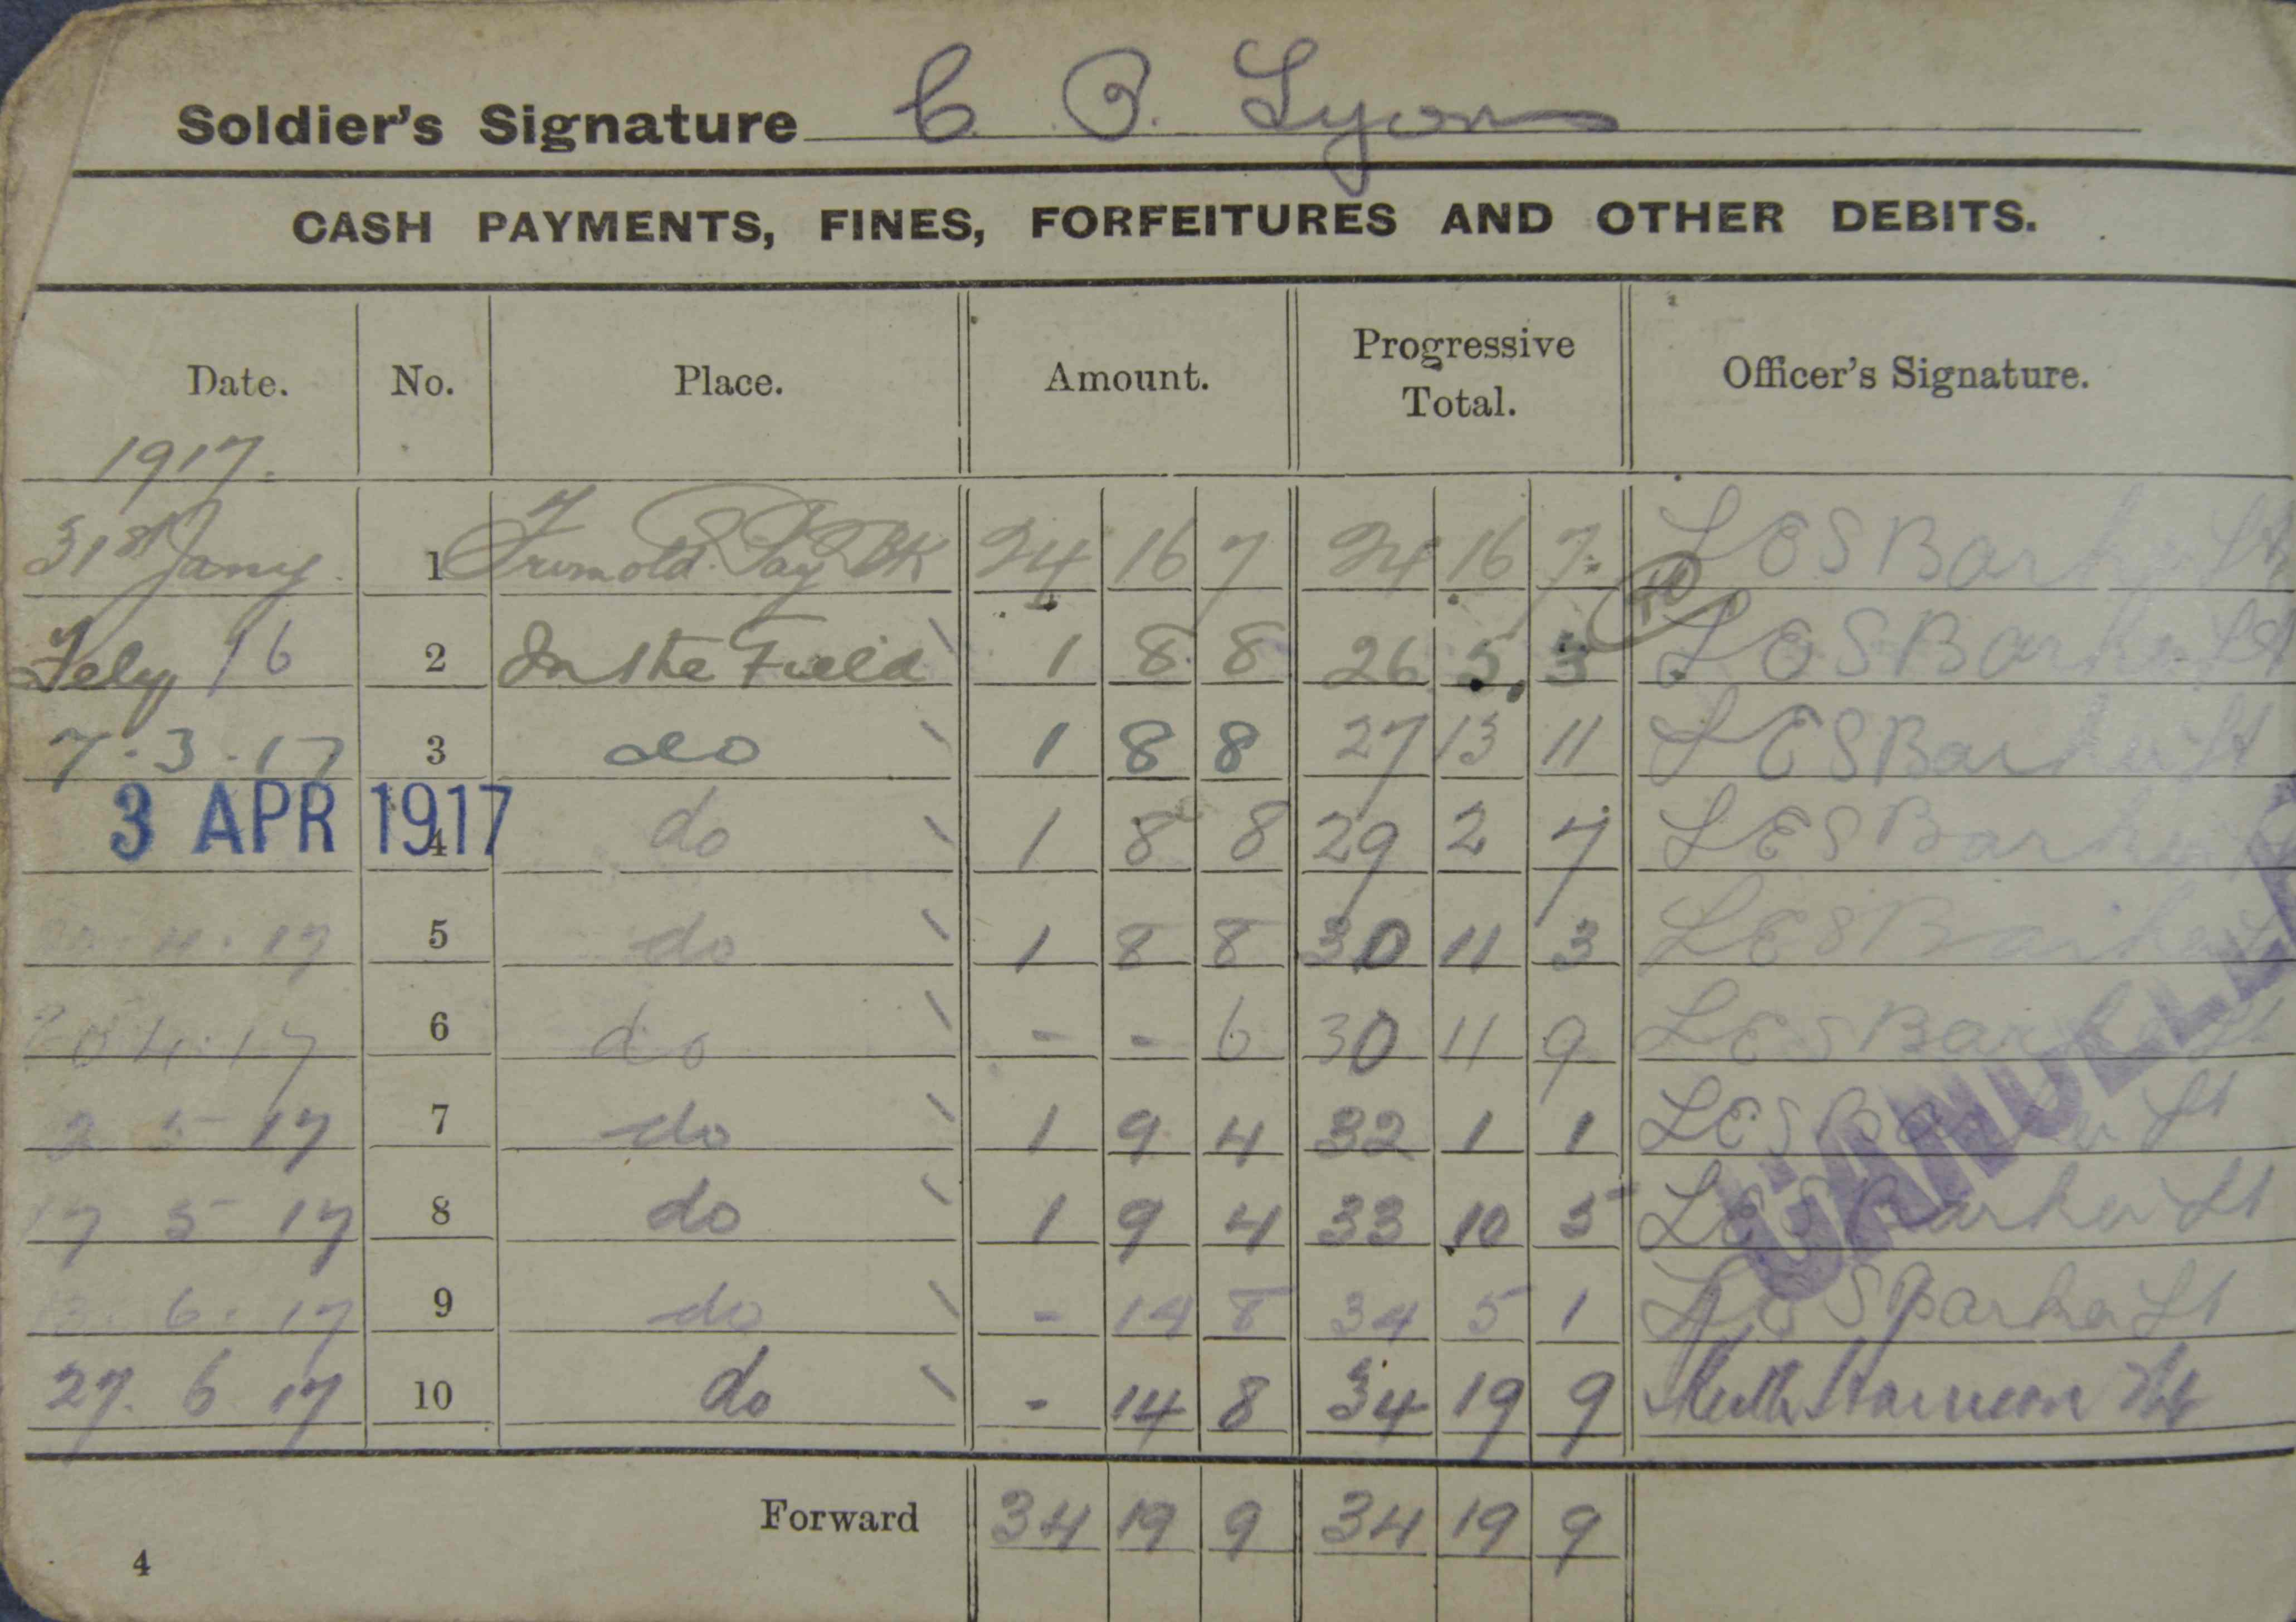 Soldier's Signature C. P. Lyons
CASH PAYMENTS, FINES, FORFEITURES AND OTHER DEBITS.
Date. No. Place. Amount. Progressive Total. Officer's Signature.
1917.
31st Jany. 1 From old Pay BK 24 16 7 24 16 7 L E S Barker Lt
Feby 16 2 In the Field 1 8 8 26 5 3 L E S Barker Lt
7.3.17 3 do 1 8 8 27 13 11 L E S Barker Lt
3 APR 1917 4 do 1 8 8 29 2 7 L E S Barker
4.17 5 do 1 8 8 30 11 3 L E S Barker Lt
20 4.17 6 do - - 6 30 11 9 L E S Barker Lt
2 5 17 7 do 1 9 4 32 1 1 L E S Barker Lt
17 5 17 8 do 1 9 4 33 10 5 L E S Barker Lt
13.6.17 9 do - 14 8 34 5 1 L E S Barker Lt
27.6 17 10 do - 14 8 34 19 9 Harrison
CANCELLED
Forward 34 19 9 34 19 9
4